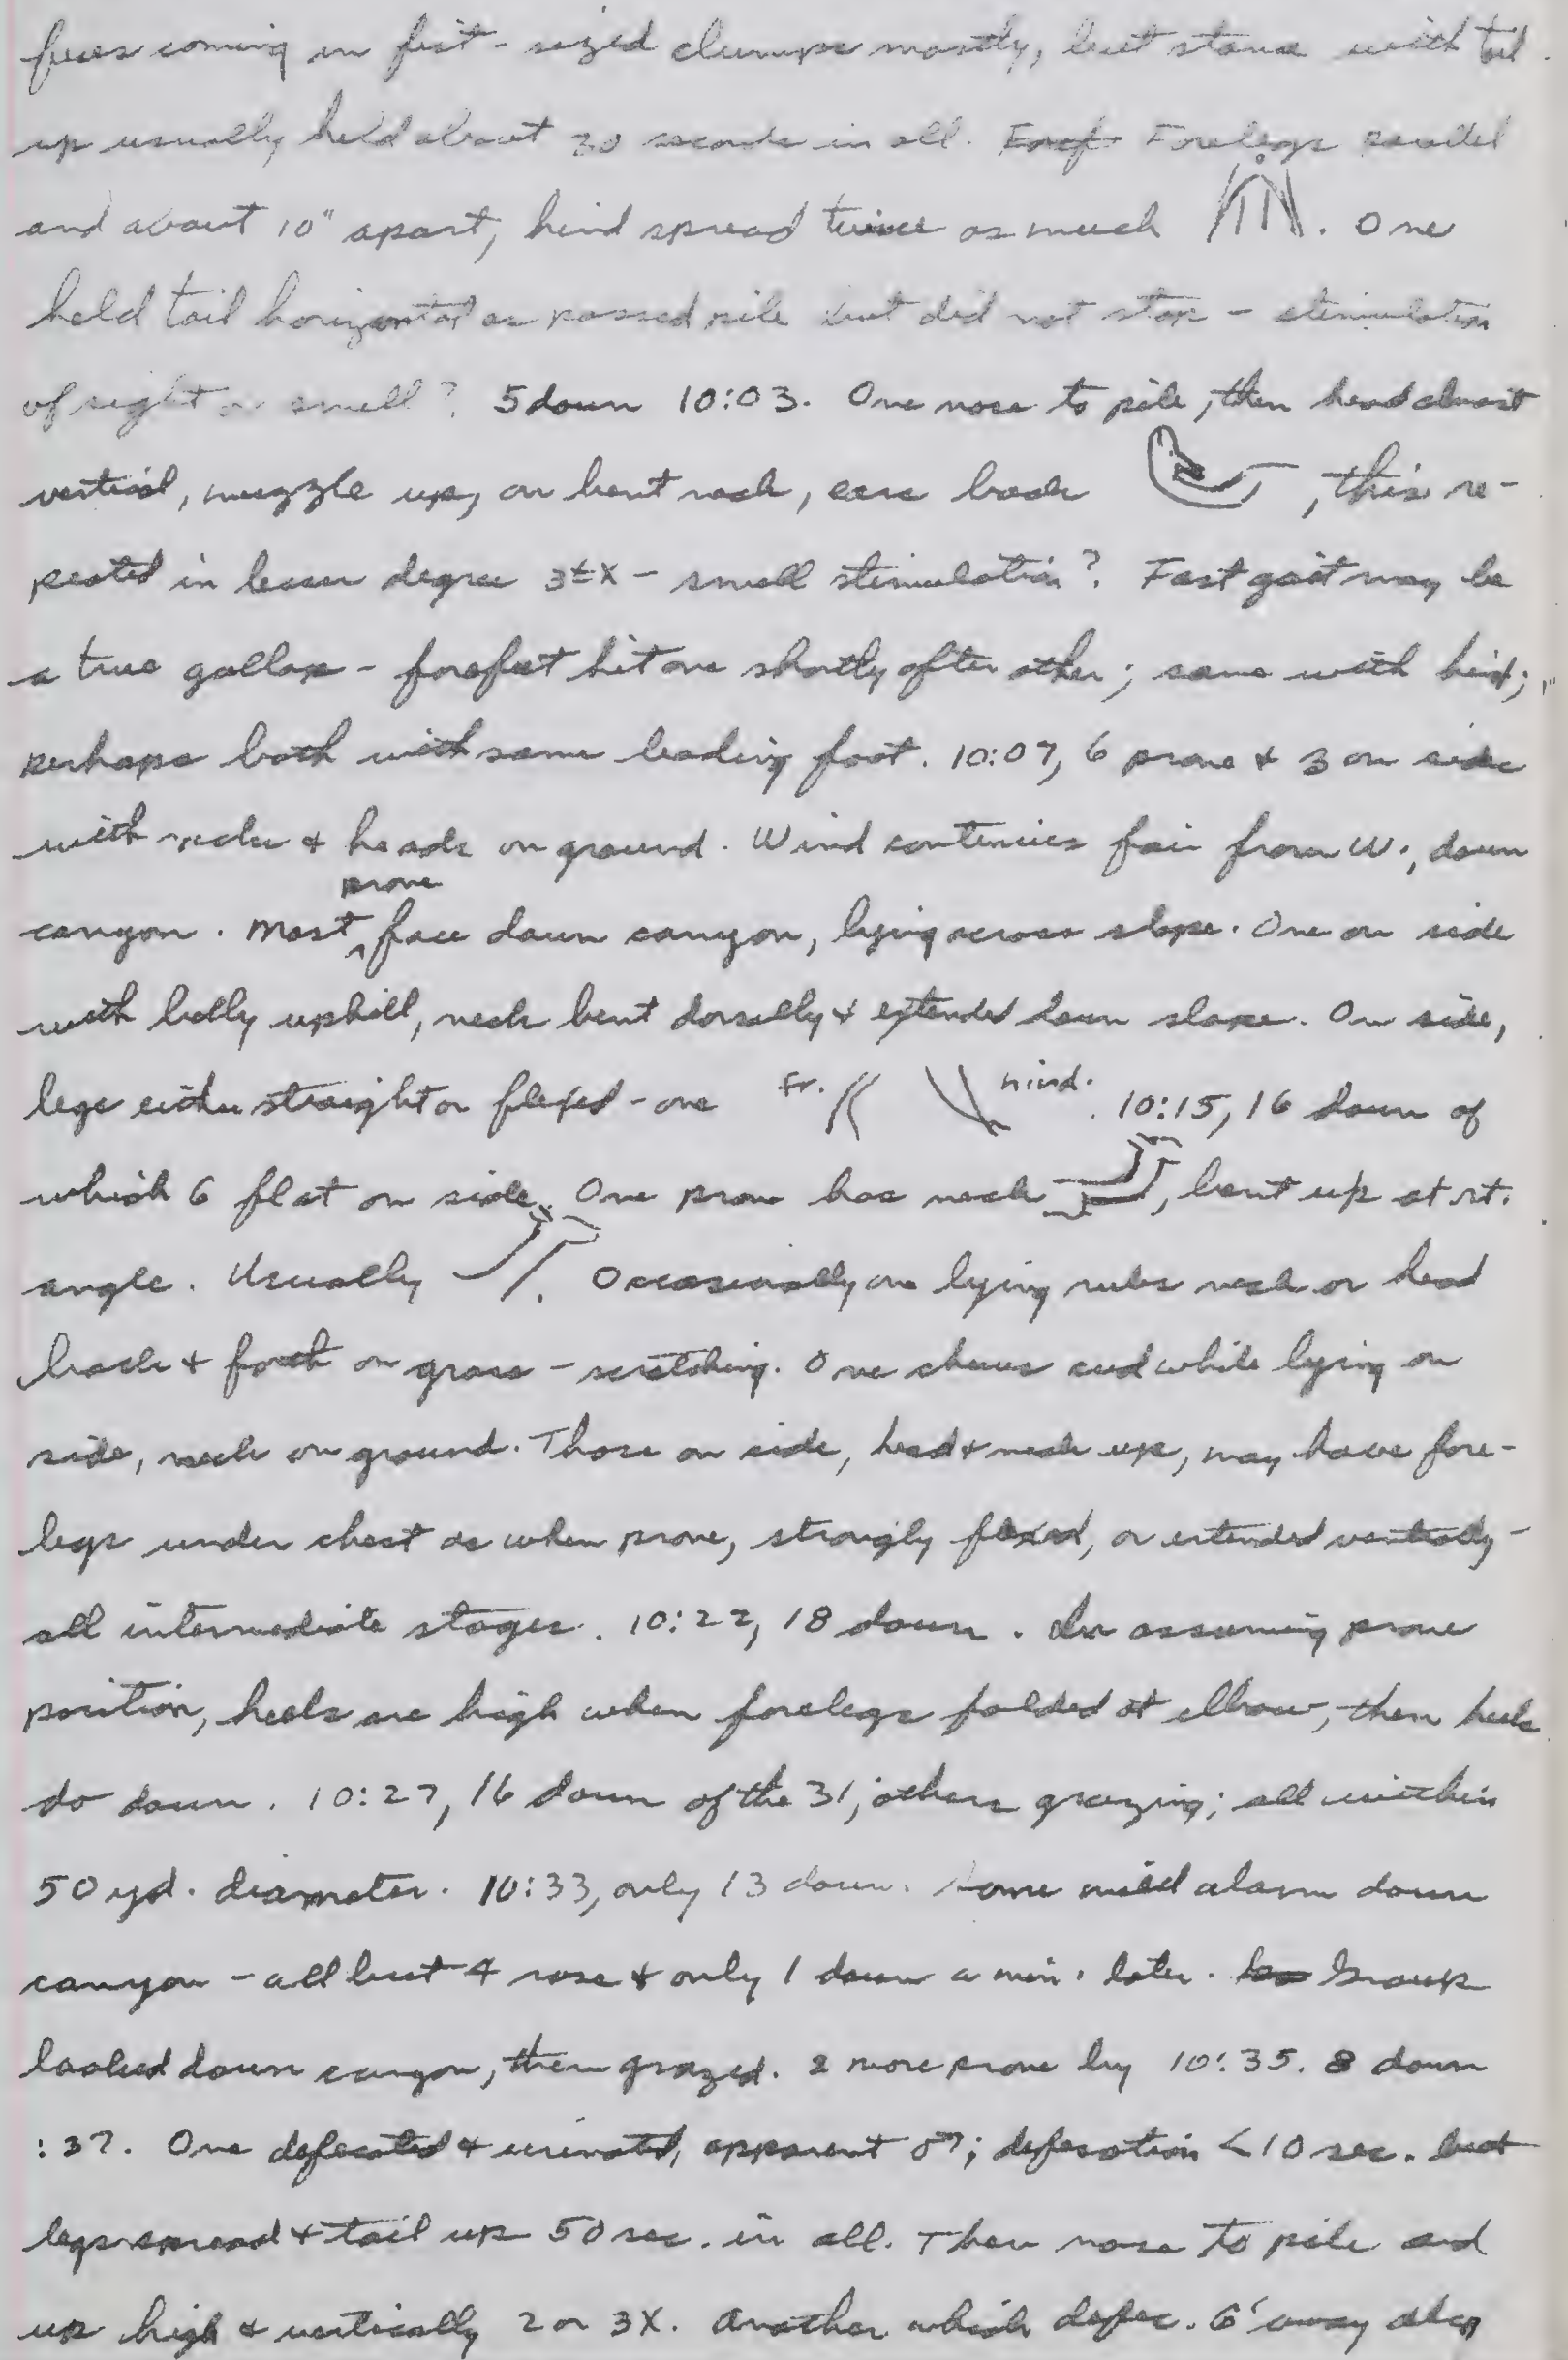 feces coming in fist-sized clumps mostly, but stance with tail
up usually held about 30 seconds in all. Forelegs parallel
and about 10" apart, hind spread twice as much. One
held tail horizontal as passed pile but did not stop - stimulation
of sight or smell? 5 down 10:03. One nose to pile, then head almost
vertical, muzzle up, on bent neck, ears back, this re-
peated in lesser degree 3±X - smell stimulation? Fast gait may be
a true gallop - forefeet hit one shortly after other; same with hind;
perhaps both with same leading foot. 10:07, 6 prone & 3 on side
with necks & heads on ground. Wind continues fair from W., down
canyon. Most prone face down canyon, lying across slope. One on side
with belly uphill, neck bent dorsally & extended down slope. On side,
legs either straight or flexed - one Fr. hind. 10:15, 16 down of
which 6 flat on side. One prone has neck, bent up at rt.
angle. Usually. Occasionally one lying rubs neck or head
back & forth on grass - scratching. One chews cud while lying on
side, neck on ground. Those on side, head & neck up, may have fore-
legs under chest as when prone, strongly flexed, or extended ventrally -
all intermediate stages. 10:22, 18 down. In assuming prone
position, heels are high when forelegs folded at elbow, then heels
do down. 10:27, 16 down of the 31, others grazing; all within
50 yd. diameter. 10:33, only 13 down. Some mild alarm down
canyon - all but 4 rose & only 1 down a min. later. Group
looked down canyon, then grazed. 2 more prone by 10:35. 8 down
:37. One defecated & urinated, apparent ♂; defecation <10 sec. but
legs spread & tail up 50 sec. in all. Then nose to pile and
up high & vertically 2 or 3X. Another which defec. 6' away also